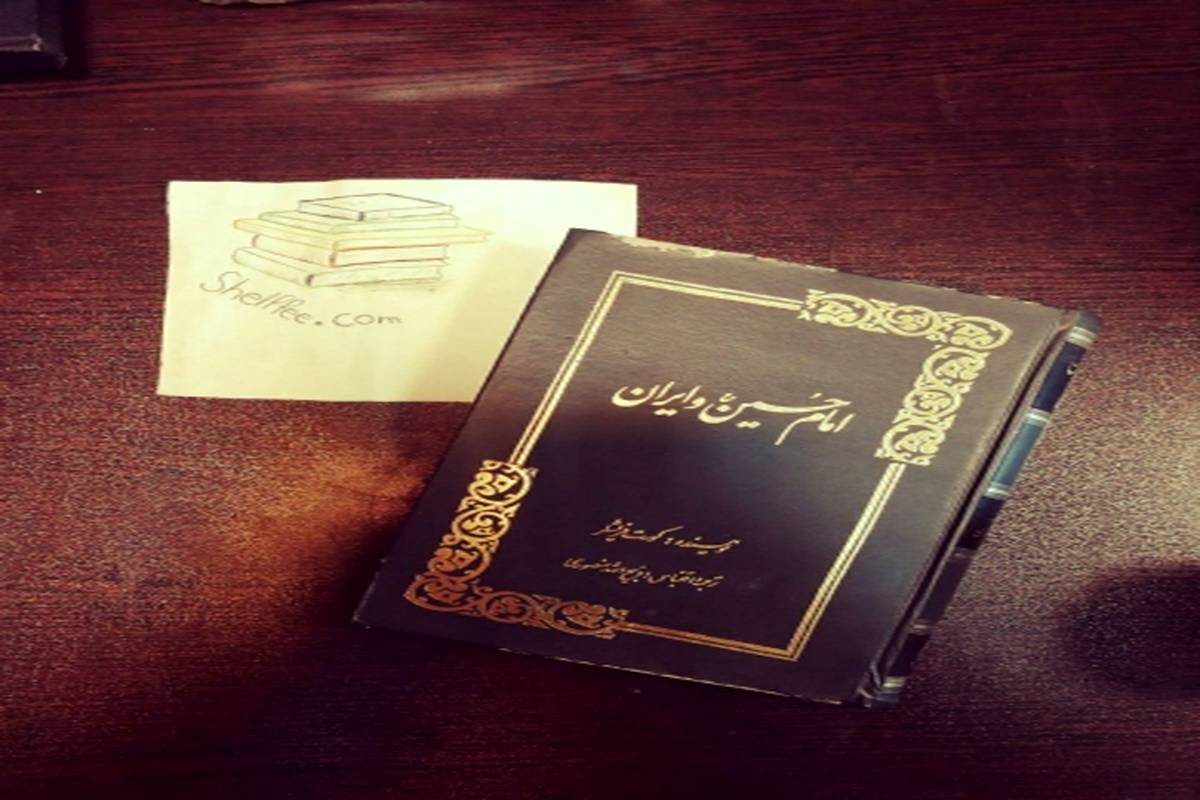 Shelffee.com
امام حسین ع و ایران
نویسنده: کورت فریشلر
ترجمه و اقتباس: ذبیح الله منصوری